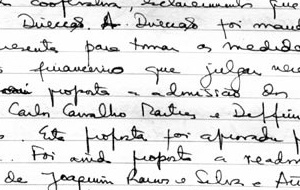 cooperativa, esclarecimentos que
Direcção. A Direcção foi man
para tomar as medidas
financeiro que julgar nece
proposta a admissão dos
Carlos Carvalho Martins e Delfim
. Esta proposta foi aprovada p
. Foi ainda proposta a readm
de Joaquim Ramos e Silva e